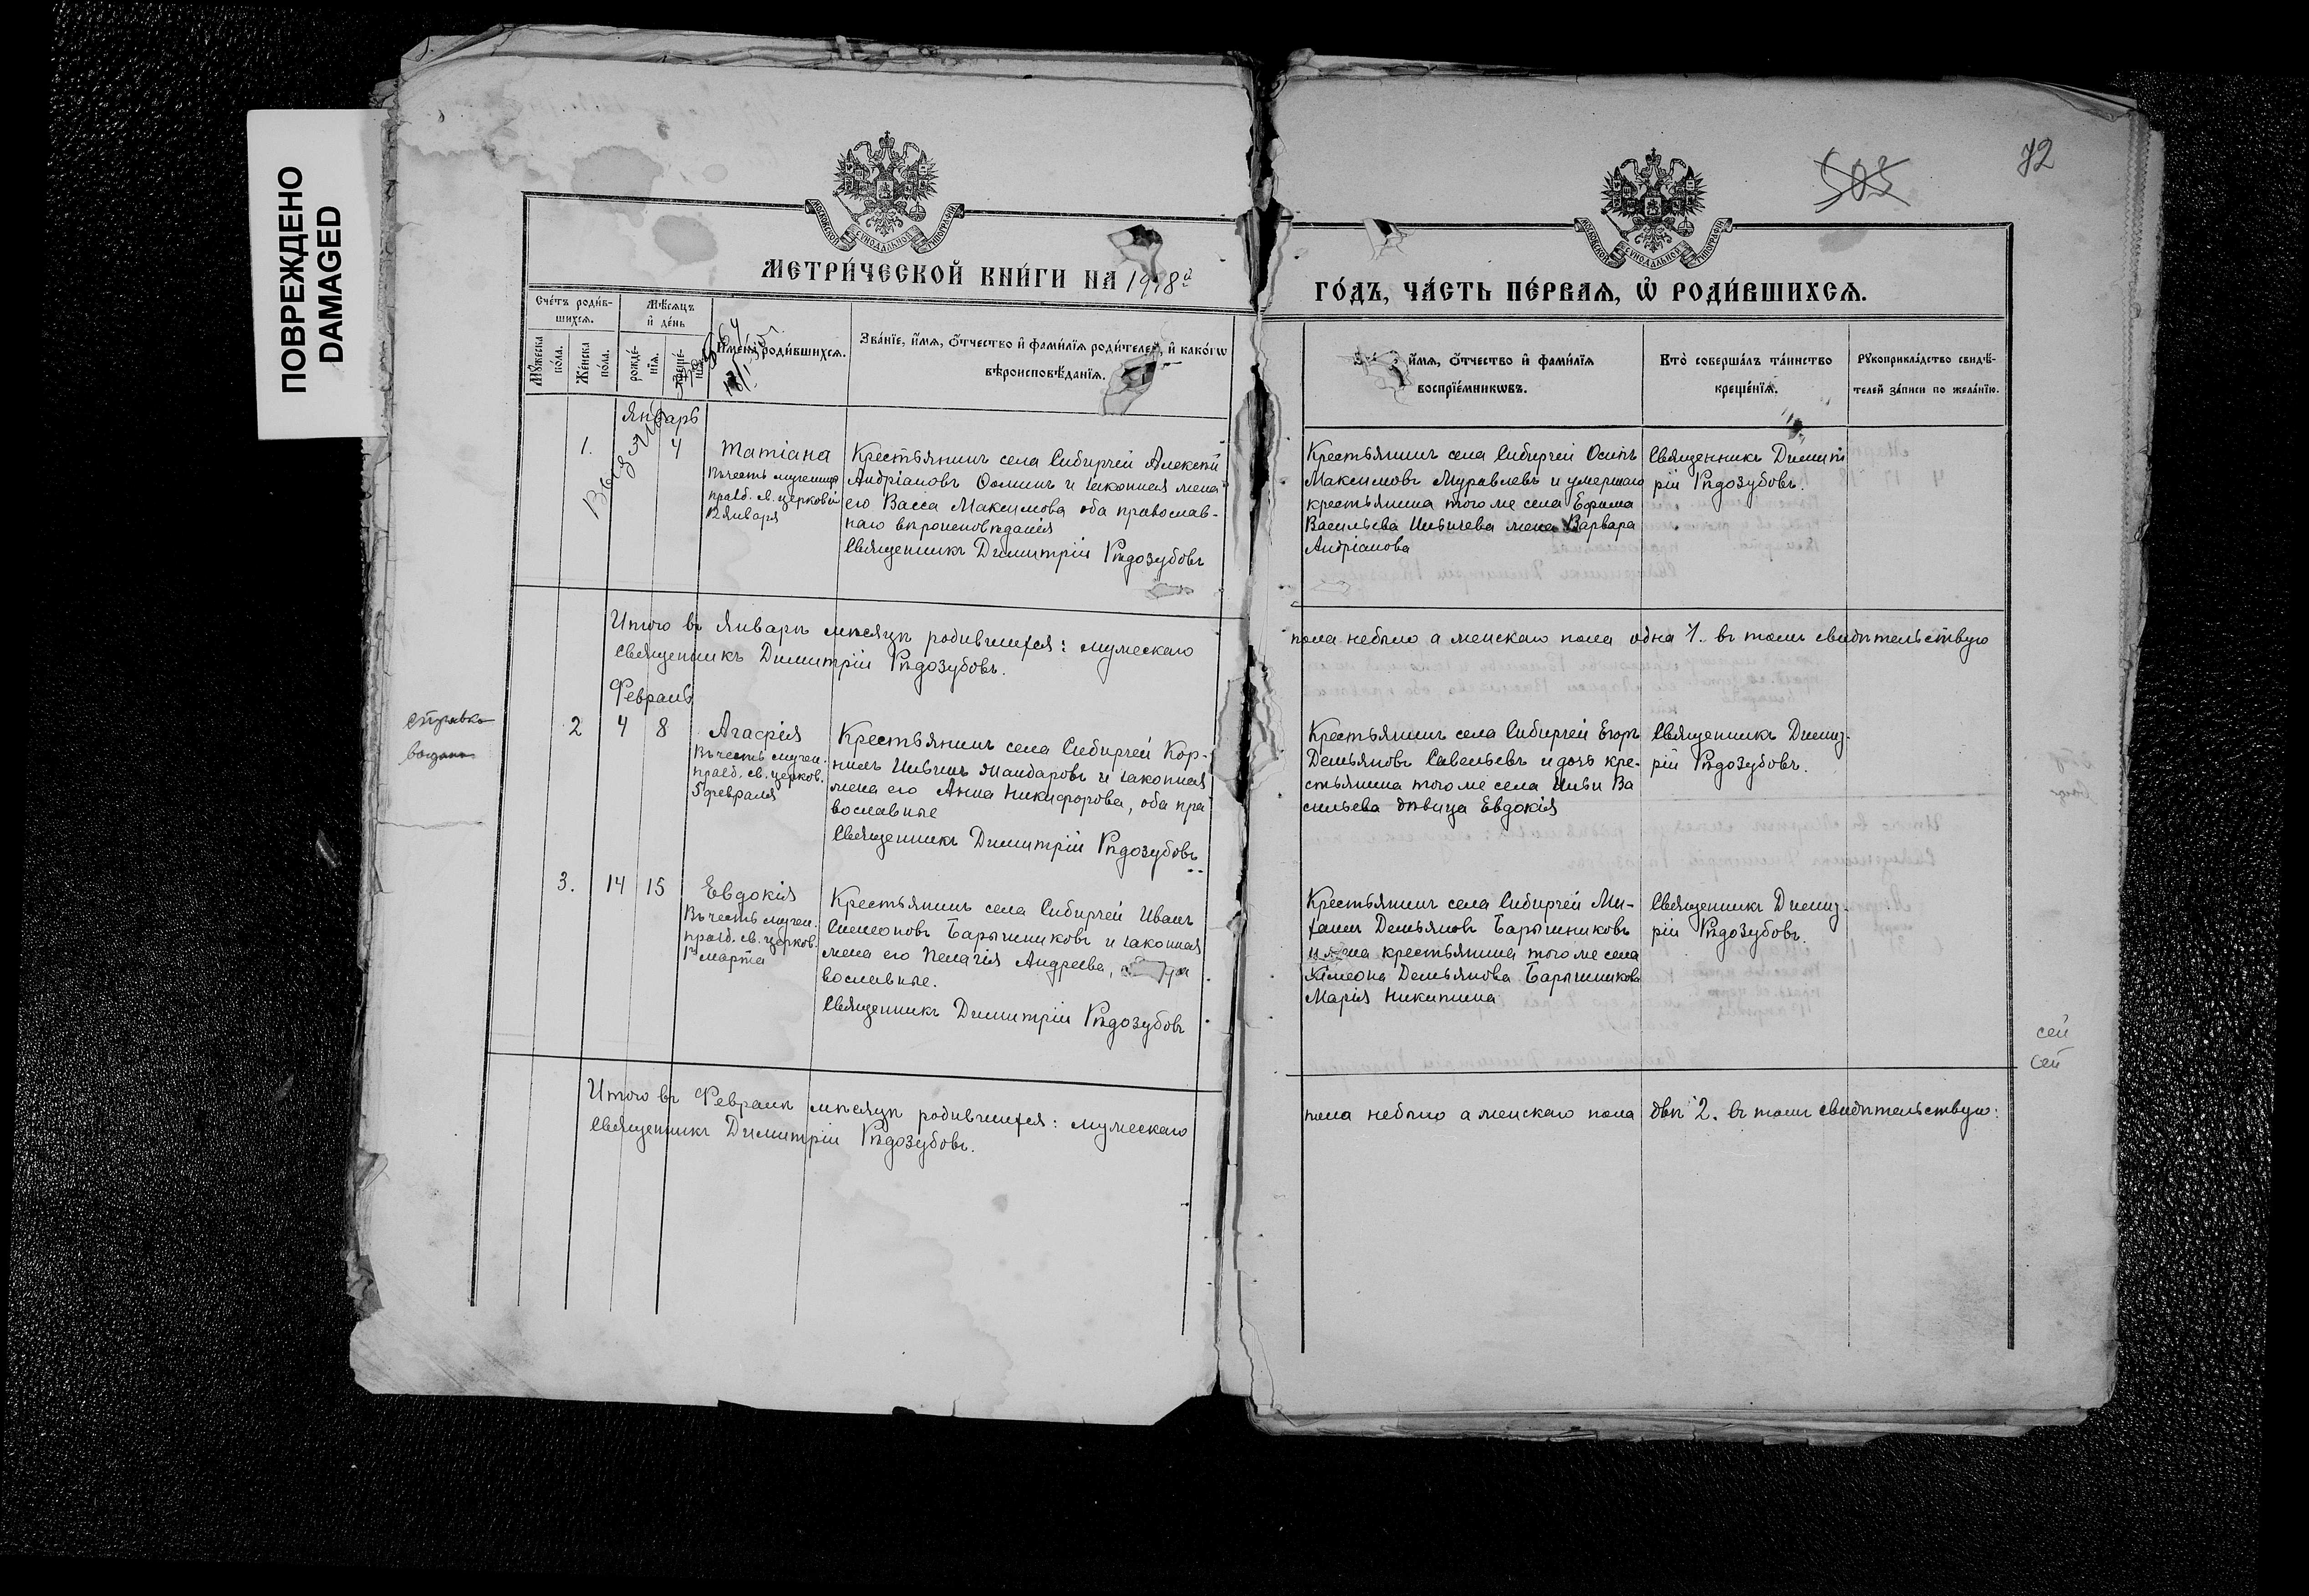 ПОВРЕЖДЕНО
DAMAGED
72
503
МОСКОВСКОЙ СУНОДАЛЬНОЙ ТИПОГРАФІИ
МОСКОВСКОЙ СУНОДАЛЬНОЙ ТИПОГРАФІИ
МЕТРИ́ЧЕСКОЙ КНИ́ГИ НА 1918й
ГО́ДЪ, ЧА́СТЬ ПЕ́РВАѦ, Ѡ҆ РОДИ́ВШИХСѦ.
Сче́тъ роди́вшихсѧ.
Мꙋ́жеска по́ла.
Же́нска по́ла.
Мѣ́сѧцъ и҆ де́нь
рожде́нїѧ.
креще́нїѧ.
И҆мена̀ роди́вшихсѧ.
Зва́нїе, и҆́мѧ, ѻ҆́тчество и҆ фами́лїѧ роди́телей, и҆ како́гѡ
вѣроисповѣ́данїѧ.
и҆́мѧ, ѻ҆́тчество и҆ фами́лїѧ
воспрїе́мникѡвъ.
Кто̀ соверша́лъ та́инство
креще́нїѧ.
Рꙋкоприкла́дство свидѣ́-
телей за́писи по жела́нїю.
Январь
1.
4
Татіана
Въ честь мученицы
празд. св. церковію
12 января
Крестьянинъ села Сибирчей Алексѣй
Андріановъ Ѳоминъ и законная жена
его Васса Максимова оба православ-
наго вѣроисповѣданія
Священникъ Димитрій Рѣдозубовъ
Крестьянинъ села Сибирчей Осипъ
Максимовъ Муравлевъ и умершаго
крестьянина того же села Ефима
Васильева Ильичева жена Варвара
Андріанова
Священникъ Димит
рій Рѣдозубовъ.
Итого въ Январѣ мѣсяцѣ родившихся: мужескаго
пола небыло а женскаго пола одна 1. въ томъ свидѣтельствую
Священникъ Димитрій Рѣдозубовъ.
Февраль
справка
выдана
2
4
8
Агафія
Въ честь мучен.
празд. св. церков.
5 февраля
Крестьянинъ села Сибирчей Кор-
нилъ Ильинъ Жандаровъ и законная
жена его Анна Никифорова, оба пра
вославные
Священникъ Димитрій Рѣдозубовъ
Крестьянинъ села Сибирчей Егоръ
Демьяновъ Савельевъ и дочь кре-
стьянина того же села Ильи Ва
сильева дѣвица Евдокія
Священникъ Димит-
рій Рѣдозубовъ.
3.
14
15
Евдокія
Въ честь мучен.
празд. св. церков.
1го марта
Крестьянинъ села Сибирчей Иванъ
Симеоновъ Барышниковъ и законная
жена его Пелагія Андреева, пра
вославные.
Священникъ Димитрій Рѣдозубовъ
Крестьянинъ села Сибирчей Ми-
хаилъ Демьяновъ Барышниковъ
и жена крестьянина того же села
Симеона Демьянова Барышникова
Марія Никитина
Священникъ Димит-
рій Рѣдозубовъ.
сей
сей
Итого въ Февралѣ мѣсяцѣ родившихся: мужескаго
пола небыло а женскаго пола двѣ 2. въ томъ свидѣтельствую:
Священникъ Димитрій Рѣдозубовъ.